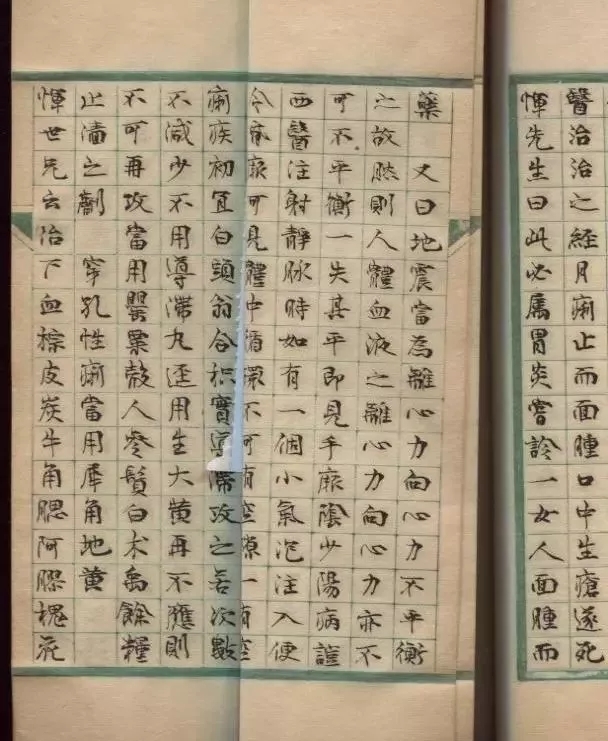 醫治治之經月痢止而面腫口中生瘡遂死
惲先生曰此必屬胃炎嘗診一女人面腫而
藥 又曰地震當為離心力向心力不平衡
之故然則人體血液之離心力向心力亦不
可不平衡一失其平即見手厥陰少陽病證
西醫注射靜脉時如有一個小氣泡注入便
可見體中循環不可有空隙一有空
痢疾初宜白頭翁合枳實導滯攻之若次數
不減少不用導滯丸迳用生大黃再不應則
不可再攻當用罌粟殼人參鬚白朮禹餘糧
止濇之劑 穿孔性痢當用犀角地黃
惲世兄云治下血棕皮炭牛角腮阿膠槐花